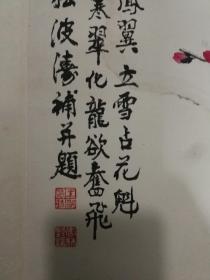 鳳翼立雪占花魁
寒翠化龍欲奮飛
波濤補并題